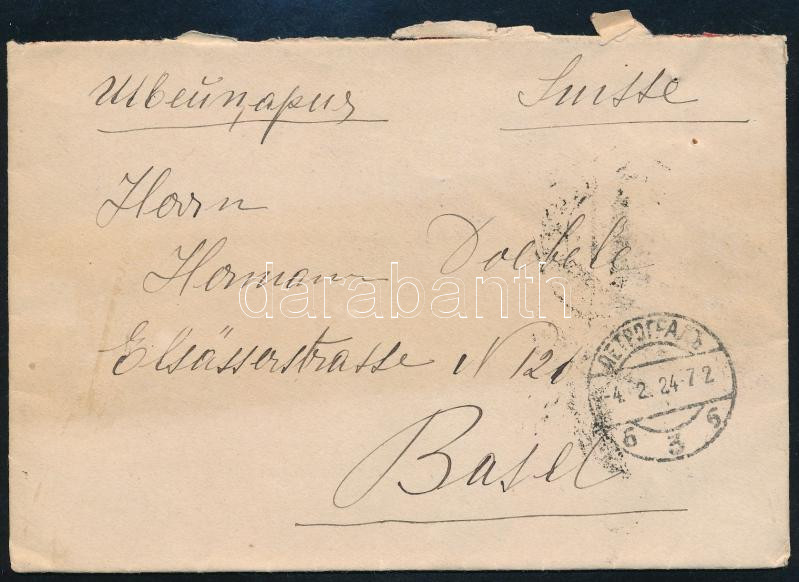 Швейцария Suisse
Herrn
Hermann Doebele
Elsässerstrasse N 121
Basel
ПЕТРОГРАДЪ
-4. 2. 24-7 2
6 3 6
darabanth